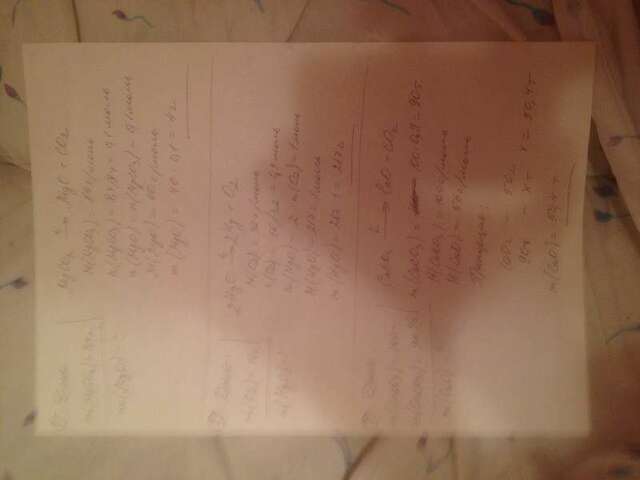 Дано:
m(MgCO3) = 8,4г
m(MgO) = ?
MgCO3 = MgO + CO2
M(MgCO3) = 84 г/моль
n(MgCO3) = 8,4/84 = 0,1 моль
n(MgO) = n(MgCO3) = 0,1 моль
M(MgO) = 40 г/моль
m(MgO) = 40 · 0,1 = 4г
Дано:
m(O2) = 16г
m(HgO) = ?
2HgO = 2Hg + O2
M(O2) = 32 г/моль
n(O2) = 16/32 = 0,5 моль
n(HgO) = 2 · n(O2) = 1 моль
M(HgO) = 217 г/моль
m(HgO) = 217 · 1 = 217г
Дано:
CaCO3 → CaO + CO2
m(CaCO3) = 100 · 0,9 = 90т
M(CaCO3) = 100 г/моль
M(CaO) = 56 г/моль
Пропорция:
100г – 56г
90т – x т x = 50,4т
m(CaO) = 50,4 т